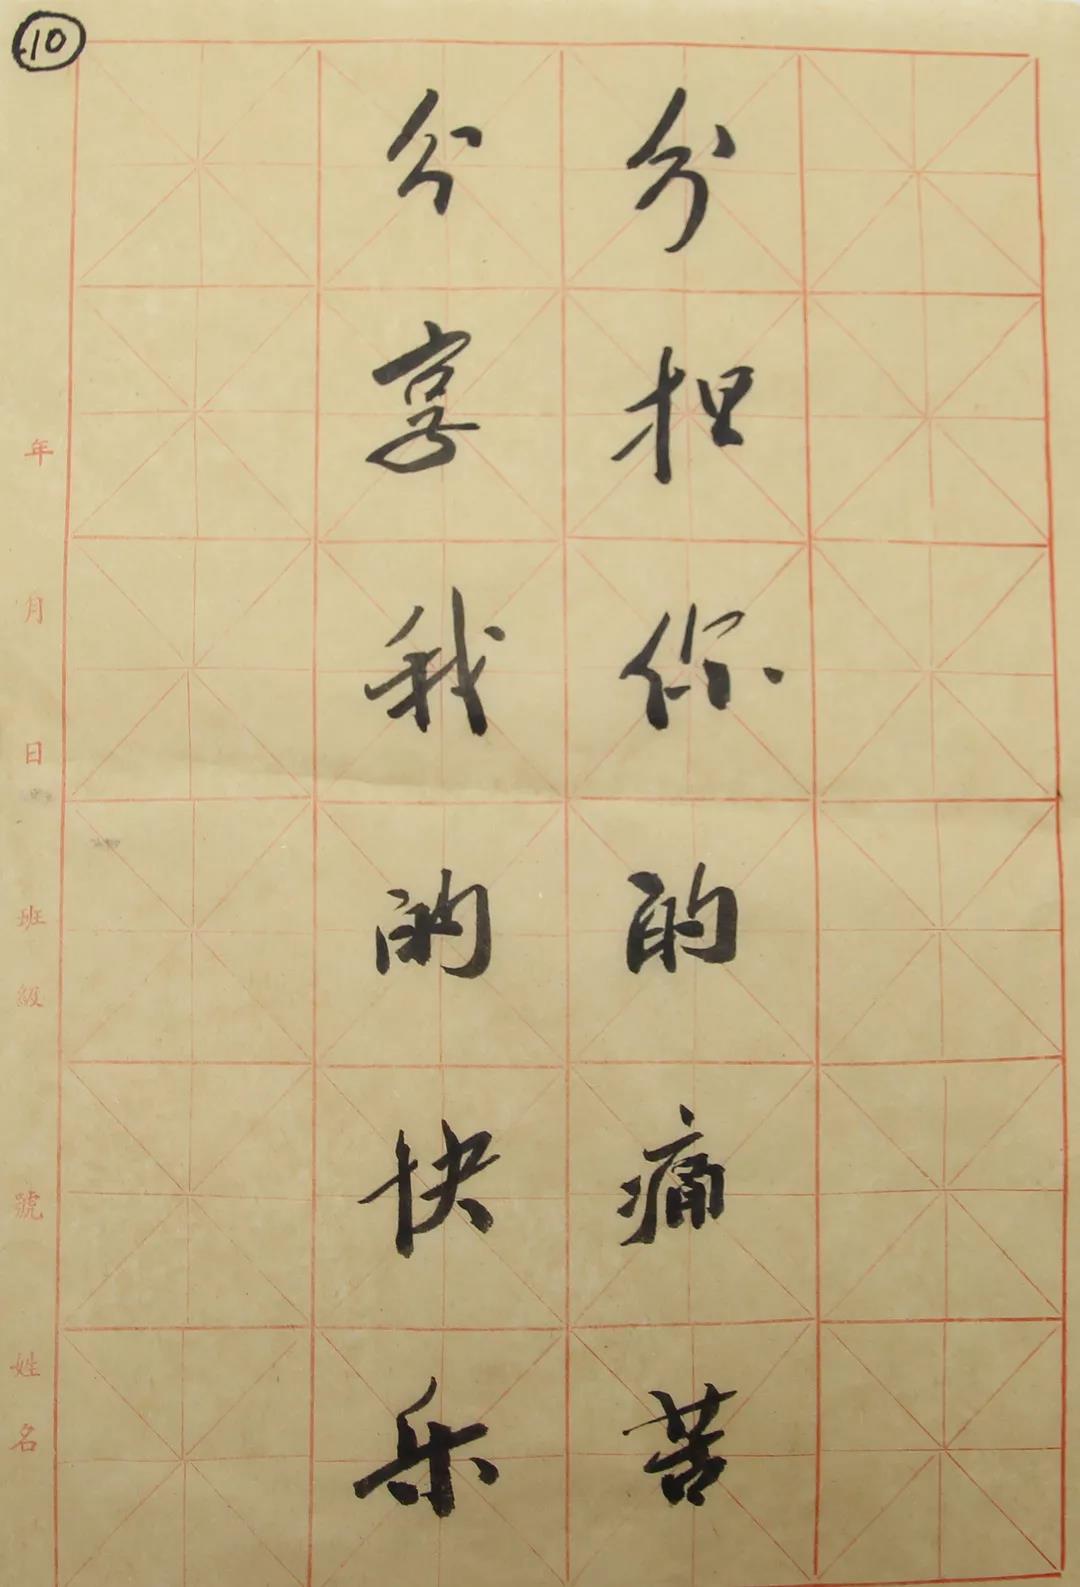 10
分担你的痛苦
分享我的快乐
年 月 日 班級 號 姓名